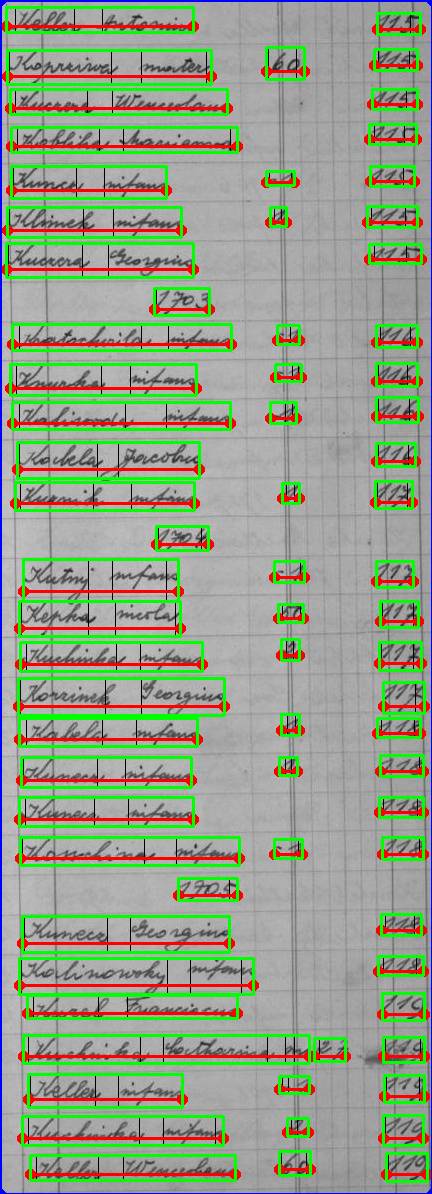 Keller Antonius 115
Koprziwa mater 60 115
Kuczera Wenceslaus 115
Koblizka Marianna 115
Kunca infans -1 115
Klimek infans 1 115
Kuczera Georgius 115
1703
Kratochwila infans -1 116
Knurka infans -1 116
Kalivoda infans -1 116
Kabela Jacobus 116
Kusnik infans 1 117
1704
Kutny infans -1 117
Kepka incola 50 117
Kuchinka infans 1 117
Korzinek Georgius 117
Kabela infans 1 118
Kunecz infans 1 118
Kunecz infans 118
Kaschina infans -1 118
1705
Kunecz Georgius 118
Kalinowsky infans 118
Karel Franciscus 119
Kuchinka Catharina 119
Keller infans -1 119
Kuchinka infans 1 119
Keller Wenceslaus 60 119